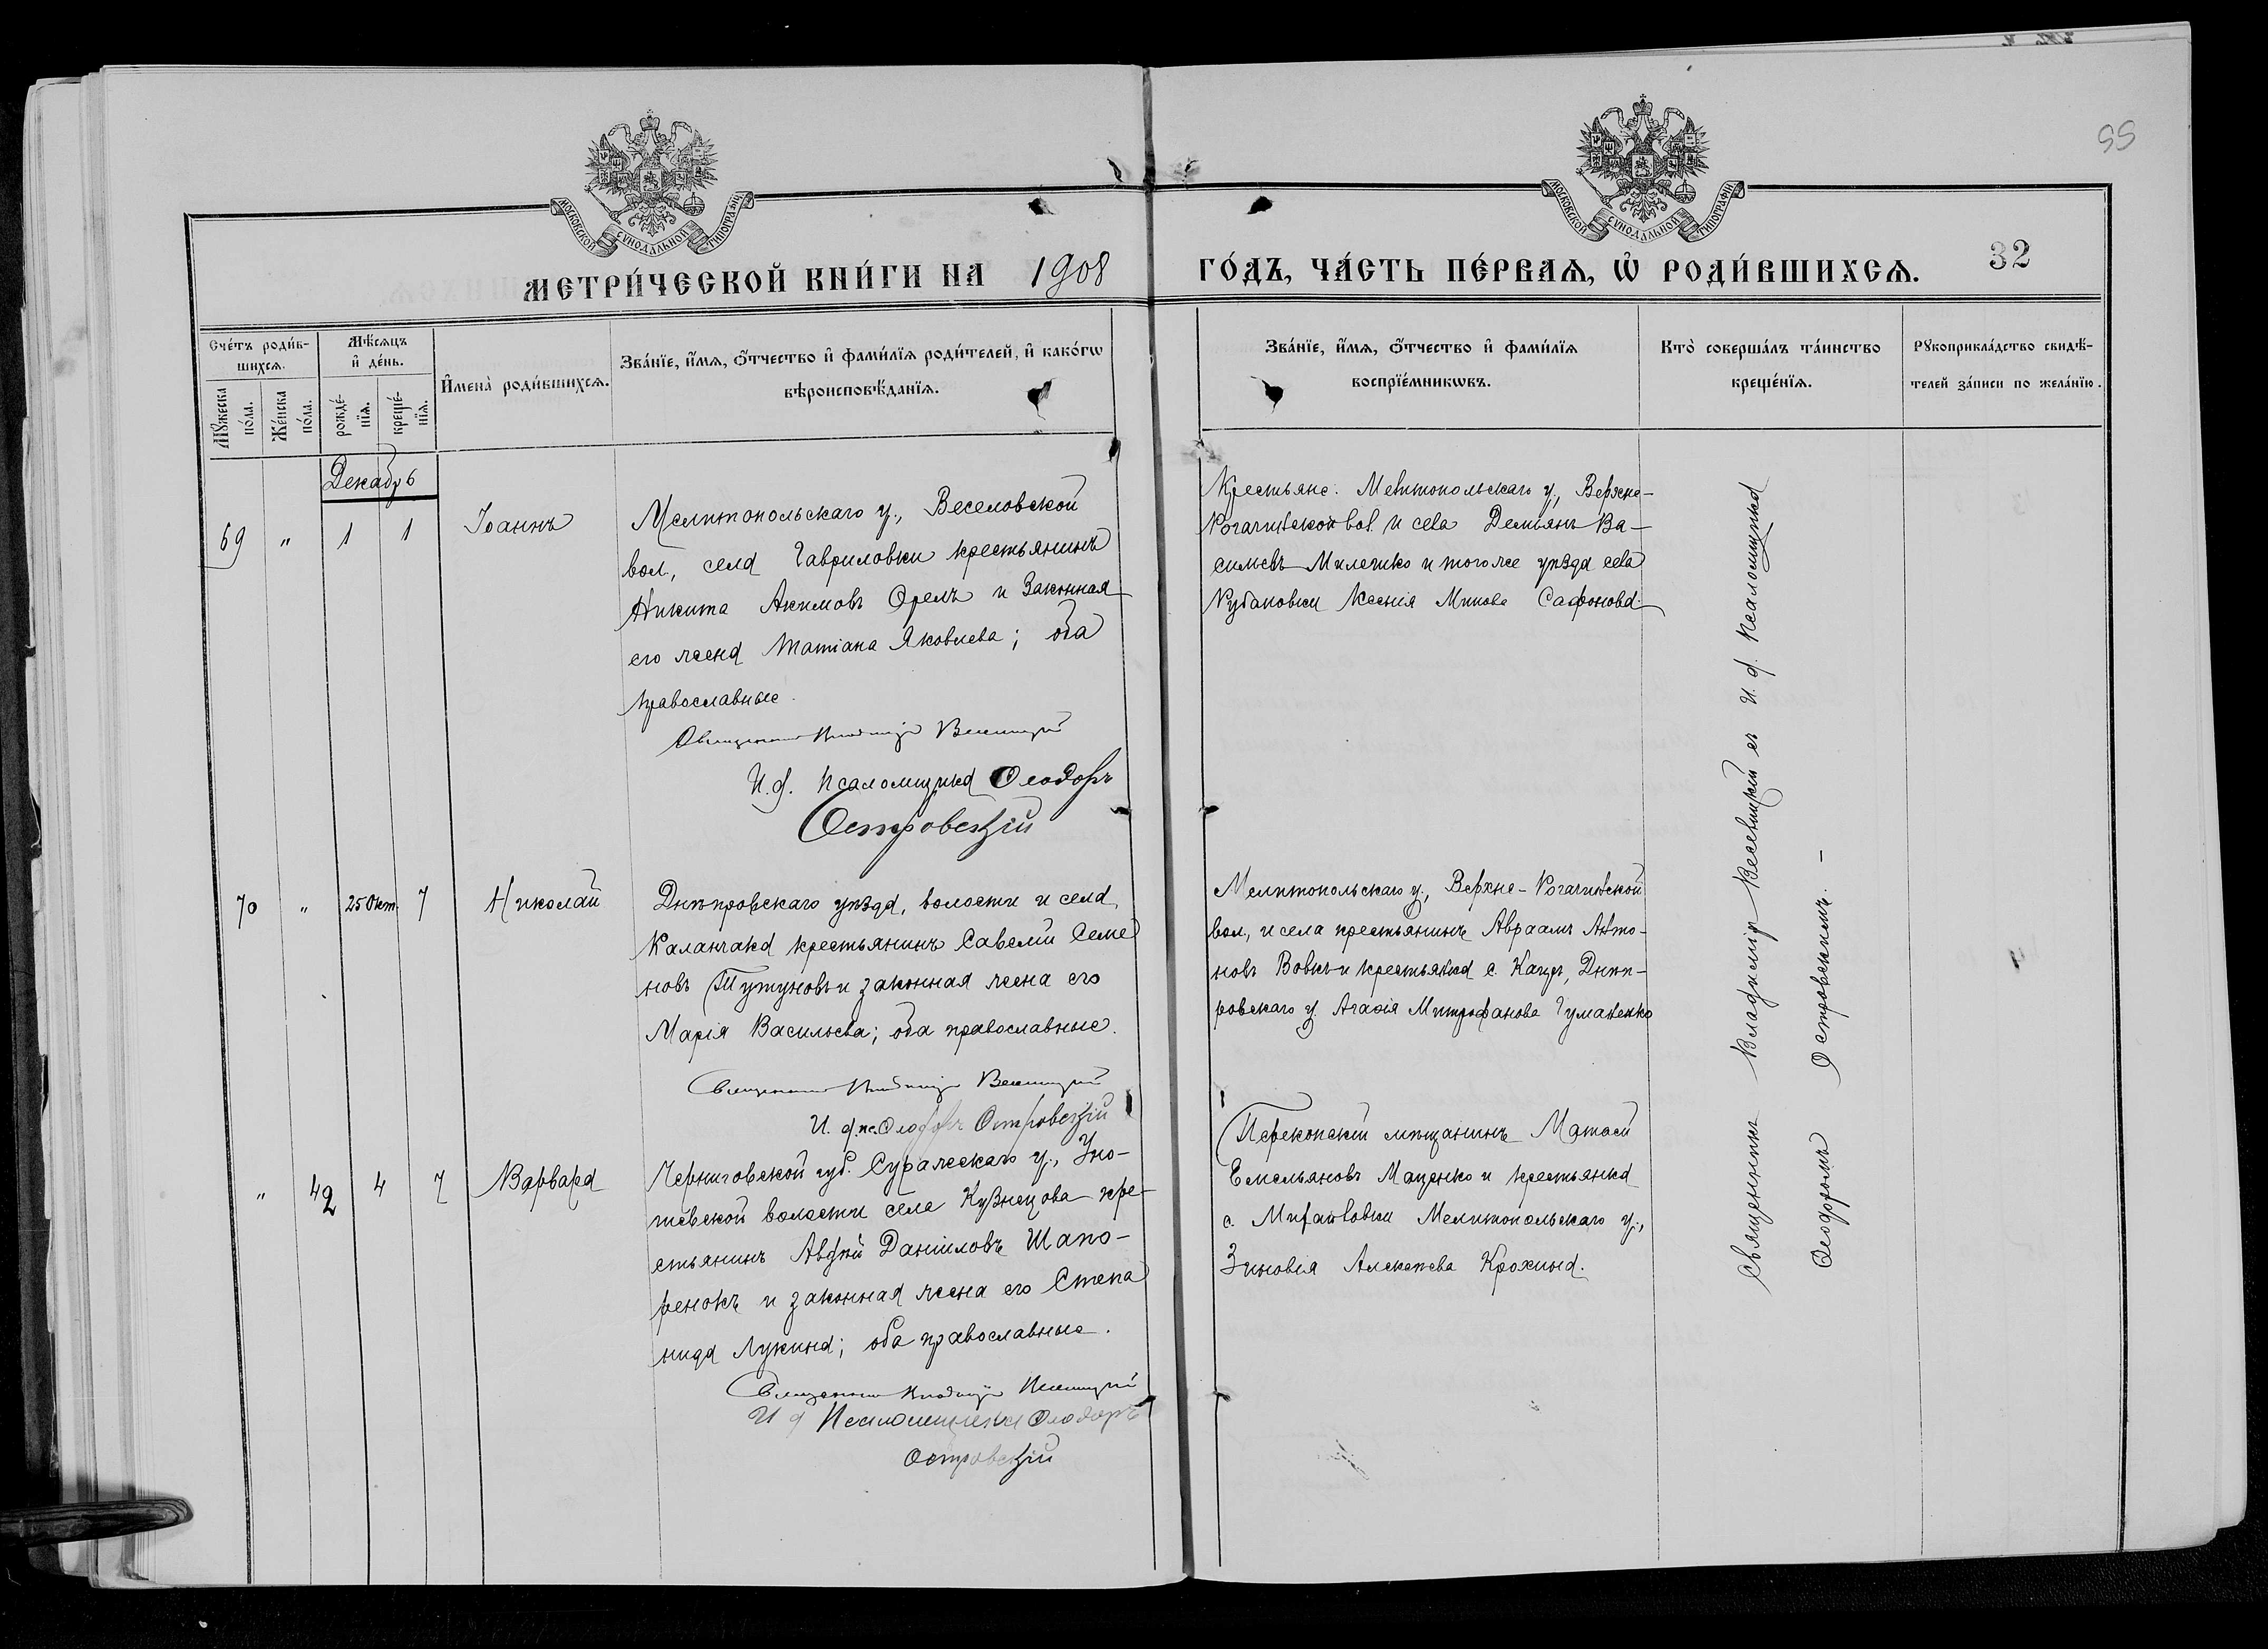 55
МОСКОВСКОЙ СѴНОДАЛЬНОЙ ТИПОГРАФІИ
МОСКОВСКОЙ СѴНОДАЛЬНОЙ ТИПОГРАФІИ
МЕТРИ́ЧЕСКОЙ КНИ́ГИ НА 1908
ГО́ДЪ, ЧА́СТЬ ПЕ́РВАѦ, Ѡ҆ РОДИ́ВШИХСѦ.
32
Сче́тъ роди́в-
шихсѧ.
Мꙋ́жеска
по́ла.
Же́нска
по́ла.
Мѣ́сѧцъ
и҆ де́нь.
рожде́-
нїѧ.
креще́-
нїѧ.
И҆мена̀ роди́вшихсѧ.
Зва́нїе, и҆́мѧ, ѻ҆́тчество и҆ фами́лїѧ роди́телей, и҆ како́гѡ
вѣроисповѣ́данїѧ.
Зва́нїе, и҆́мѧ, ѻ҆́тчество и҆ фами́лїѧ
воспрїе́мникѡвъ.
Кто̀ соверша́лъ та́инство
креще́нїѧ.
Рꙋкоприкла́дство свидѣ́-
телей за́писи по жела́нїю.
Декабрь
69 " 1 1 Іоаннъ
Мелитопольскаго у., Веселовской
вол., села Гавриловки крестьянинъ
Никита Акимовъ Орелъ и Законная
его жена Татіана Яковлева; оба
православные.
Священникъ Владиміръ
И. д. псаломщика Ѳеодоръ
Островскій
Крестьяне: Мелитопольскаго у., Верхне-
Рогачикской вол. и села Деміянъ Ва-
сильевъ Милешко и того же уѣзда села
Рубановки Ксенія Минова Сафонова.
70 " 25 Окт. 7 Николай
Днѣпровскаго уѣзда, волости и села
Каланчака крестьянинъ Савелій Семе
новъ Тутуновъ и законная жена его
Марія Васильева; оба православные.
Священникъ Владиміръ
И. д. пс. Ѳеодоръ Островскій
Мелитопольскаго у., Верхне-Рогачикской
вол., и села крестьянинъ Авраамъ Анто-
новъ Вовкъ и крестьянка с. Каиръ, Днѣп-
ровскаго у. Агафія Митрофанова Чумаченко
" 42 4 7 Варвара
Черниговской губ. Суражскаго у.,
волости села Кузнецова кре-
стьянинъ Авдѣй Даніиловъ Шапо-
ренокъ и законная жена его Степа
нида Лукина; оба православные.
Священникъ Владиміръ
И д Псаломщика Ѳеодоръ
Островскій
Перекопскій мѣщанинъ Матѳей
Емельяновъ Маценко и крестьянка
с. Михайловки Мелитопольскаго у.,
Зиновія Алексѣева Крохина.
Священникъ Владиміръ съ И. д. Псаломщика
Ѳеодоромъ Островскимъ. —